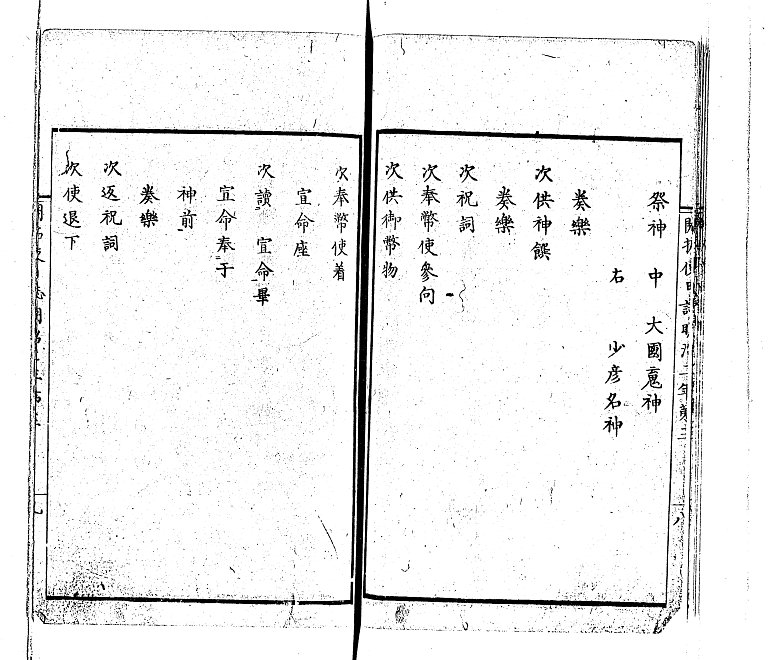 祭神 中 大國魂神
右 少彦名神
奏樂
次供神饌
奏樂
次祝詞
次奉幣使參向
次供御幣物
次奉幣使着
宣命座
次讀 宣命畢
宣命奉于
神前
奏樂
次返祝詞
次使退下
八
九